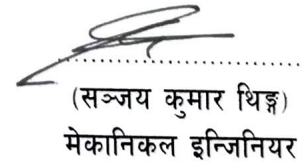 (सञ्जय कुमार थिङ्ग)
मेकानिकल इन्जिनियर